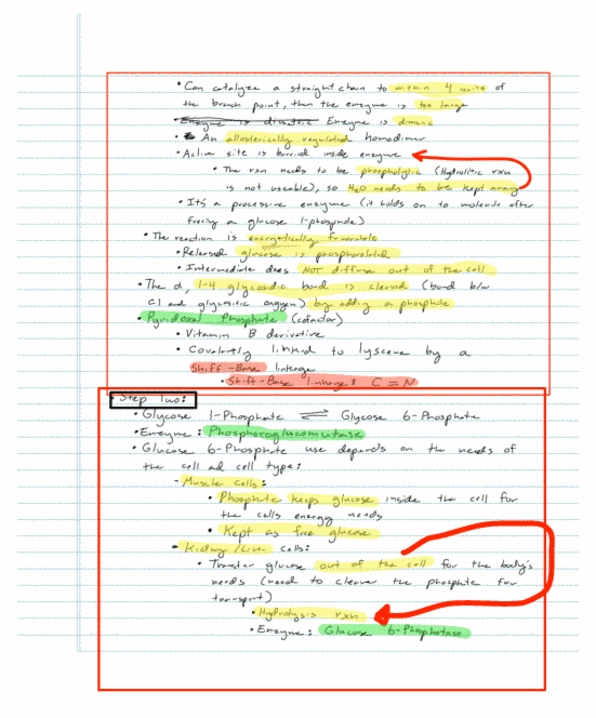 • Can catalyze a straight chain to within 4 units of
the branch point, then the enzyme is too large
• Enzyme is dimeric
• An allosterically regulated homodimer
• Active site is burried inside enzyme
• The rxn needs to be phospholytic (Hydrolitic rxn
is not useable), so H₂O needs to be kept away
• It's a processive enzyme (it holds on to molecule after
freeing a glucose 1-phosphate)
• The reaction is energetically favorable
• Released glucose is phosphorolated
• Intermediate does NOT diffuse out of the cell
• The α, 1-4 glycosidic bond is cleaved (bond b/w
C1 and glycositic oxygen) by adding a phosphate
• Pyridoxal Phosphate (cofactor)
• Vitamin B derivative
• Covalently linked to lyscene by a
Shiff-Base linkage
• Shiff-Base linkage: C=N
• Step Two:
• Glycose 1-Phosphate ⇌ Glycose 6-Phosphate
• Enzyme: Phosphoroglucomutase
• Glucose 6-Phosphate use depends on the needs of
the cell ad cell type:
- Muscle Cells:
• Phosphate keeps glucose inside the cell for
the cells energy needs
• Kept as free glucose
- Kidney/Liver cells:
• Transfer glucose out of the cell for the body's
needs (need to cleave the phosphate for
transport)
• Hydrolysis rxn
• Enzyme: Glucose 6-Phosphatase